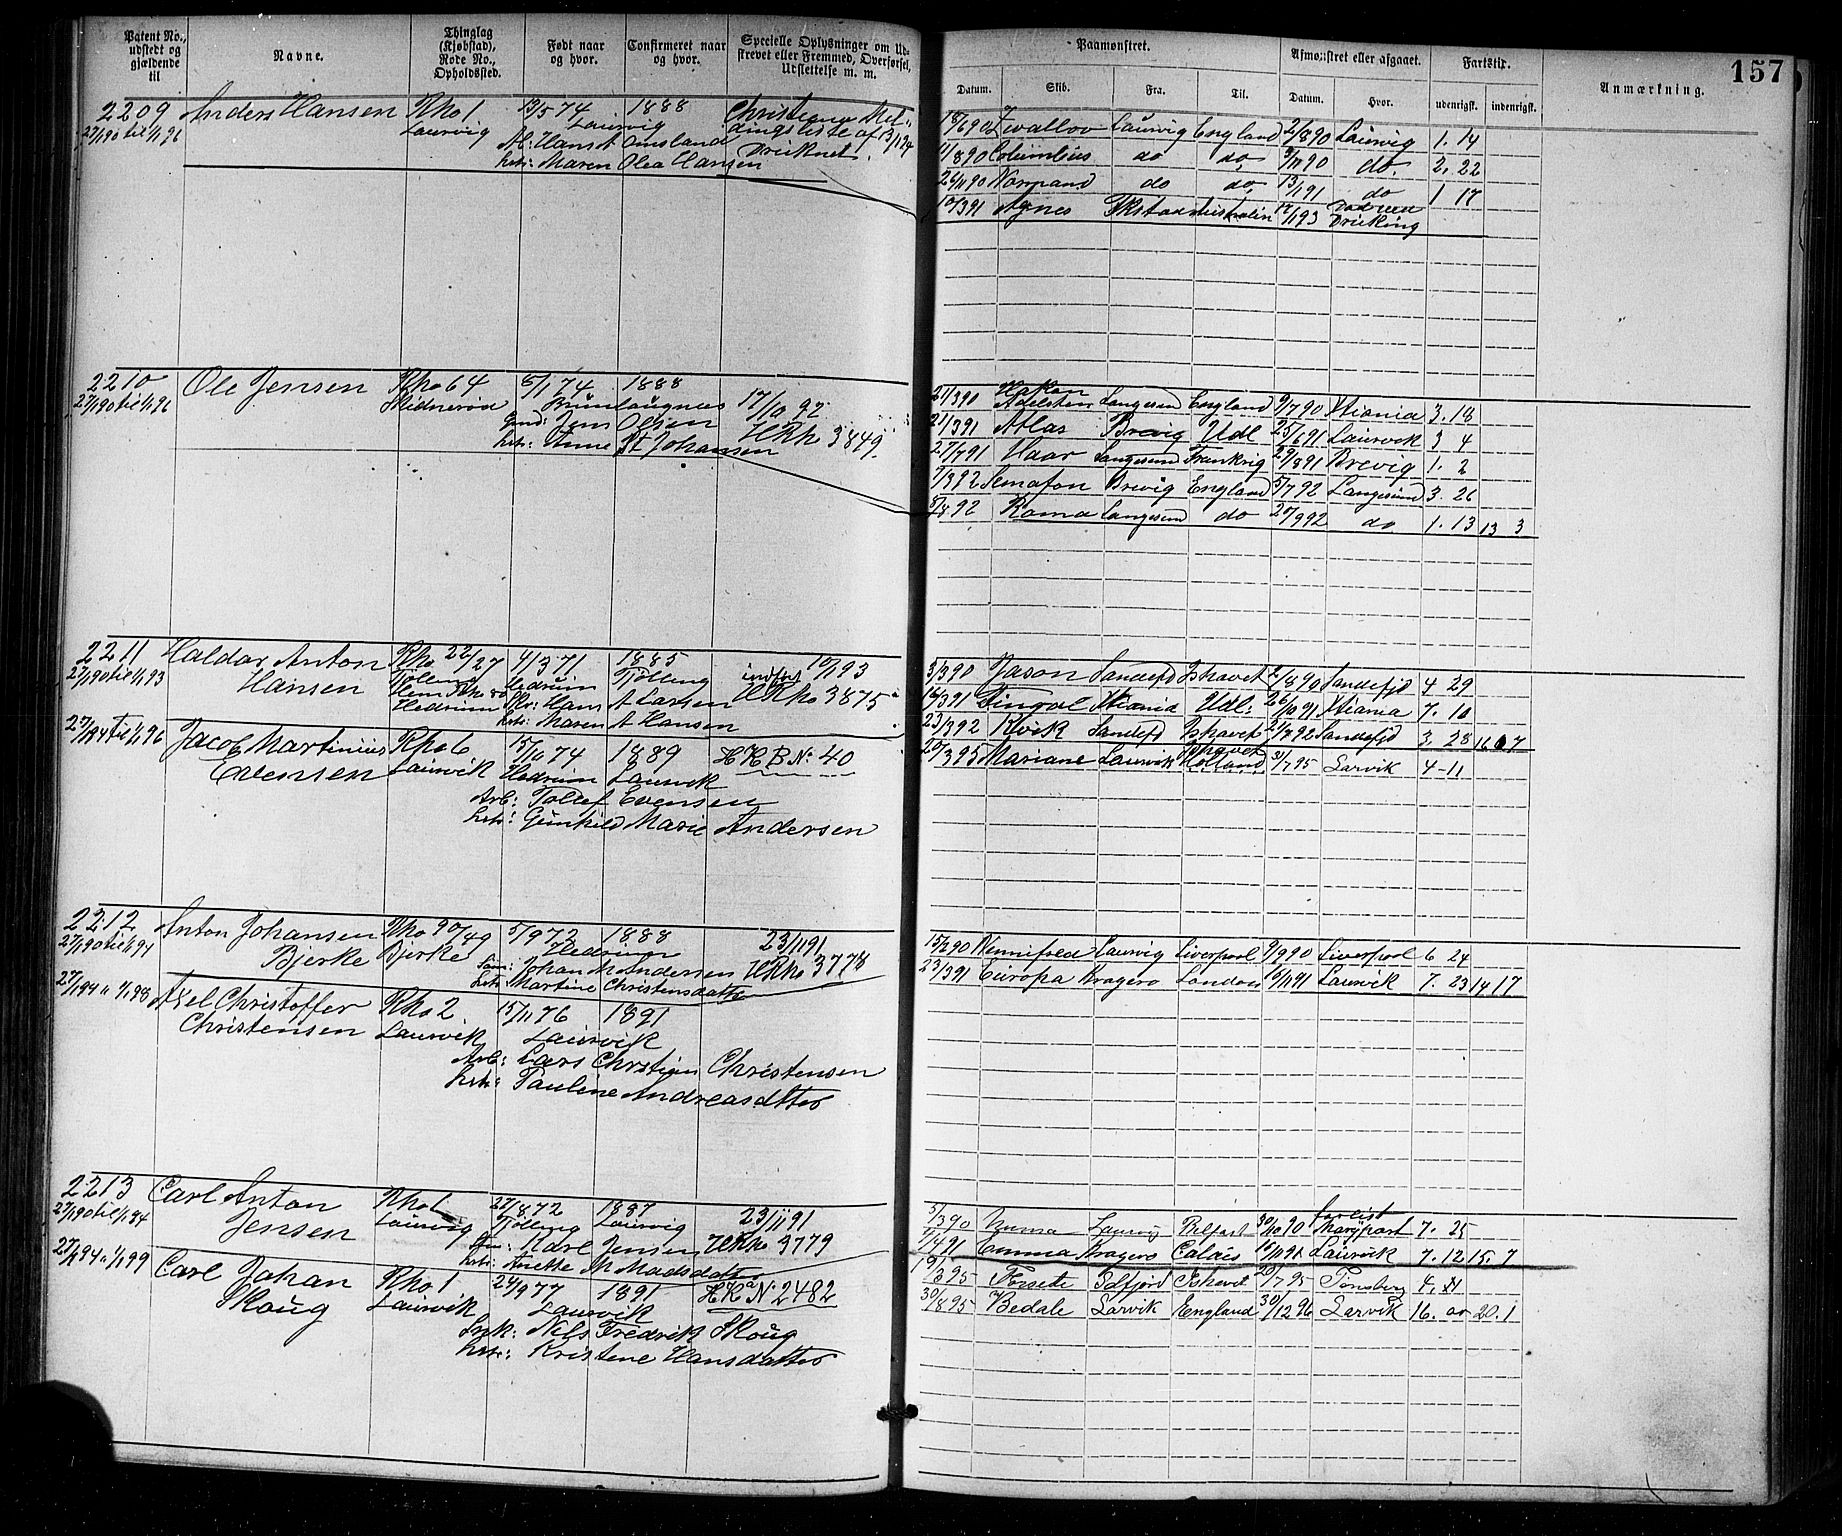 157
Patent No., udstedt og gjældende til
Navne.
Thinglag (Kjøbstad), Rode No., Opholdssted.
Født naar og hvor.
Confirmeret naar og hvor.
Specielle Oplysninger om Udskrevet eller Fremmed, Overførsel, Udslettelse m. m.
Paamønstret.
Afmønstret eller afgaaet.
Fartstid.
Anmærkning.
Datum.
Skib.
Fra.
Til.
Datum.
Hvor.
udenrigsk.
indenrigsk.
2209 Anders Hansen Rho 1 13/5 74 1888 Christiania Mel-
27/1 90 til 1/1 96 Laurvig Laurvig dingsliste af 13/1 24
Hans A Omsland Druknet.
Maren Olea Hansen
18/6 90 Laurvig England 2/8 90 Laurvig 1. 14
11/8 90 Columbus do do 90 do. 2. 22
26/11 90 Normand do do 13/1 91 do 1 17
10/3 91 Agnes 93
2210 Ole Jensen Rho 64 5/1 74 1888 17/10 92
27/1 90 til 1/1 96 Brunlaugnæs HRho 3849.
Jens Olsen
Anne Johansen
21/3 90 Hakon Adelsten Langesund England 9/7 90 3. 18
21/3 91 Atlas Brevig Udl 25/6 91 Laurvik 3 4
27/7 91 Haar Langesund Frankrig 29/8 91 Brevig 1. 2
7/3 92 Semafon Brevig England 5/7 92 Langesund 3. 26
5/8 92 Roma Langesund do 20/9 92 do 1. 13 13 3
2211 Haldor Anton Rho 22/27 4/3 71 1885 10/1 93
27/1 90 til 1/1 93 Hansen Tjølling Hedrum Tjølling indført HRho 3875
Hedrum Hans A Larsen
Maren A Hansen
3/3 90 Jason Sandefjd Ishavet 90 Sandefjd 4 29
16/3 91 Udl. 26/10 91 7. 10
23/3 92 Kvik Sandefjd Ishavet 92 Sandefjd 3. 28 16 7
27/1 94 til 1/1 96 Jacob Martinius Rho 6 15/10 74 1889 H R B No: 40
Evensen Laurvik Hedrum Laurvik
Arb: Tollef Evensen
Gunhild Marie Andersen
20/3 95 Mariane Laurvik Ishavet Holland 31/7 95 Larvik 4-11
2212 Anton Johansen Rho 90/49 5/9 72 1888 23/11 91
27/1 90 til 1/1 94 Bjerke Bjerke Hedrum HRho 3778
Johan M Andersen
Martine Christensdatter
15/2 90 Laurvig Liverpool 9/9 90 Liverpool 6 24
23/3 91 Europa Kragerø London 10/11 91 Laurvik 7. 23 14 17
27/1 94 " 1/1 98 Axel Christoffer Rho 2 15/11 76 1891
Christensen Laurvik Laurvik
Arb: Lars Christian Christensen
Pauline Andreasdatter
2213 Carl Anton Rho 1 27/8 72 1887 23/11 91
27/1 90 til 1/1 94 Jensen Laurvig Tjølling Laurvig HRho 3779
Karl Jensen
Anette M Madsdatter
5/3 90 Laurvig Belfast 30/10 90 Marypart 7. 25
7/4 91 Emma Kragerø Calais 19/11 91 Laurvik 7. 12 15. 7
27/1 94 " 1/1 99 Carl Johan Rho 1 24/9 77 1891 HRa No 2482
Skoug Laurvik Laurvik
Nils Fredrik Skoug
Kristene Hansdatter
19/3 95 Forsete Ishavet 20/7 95 Tønsberg 4.
30/8 95 Bedale Larvik England 30/12 96 Larvik 16. 20. 1